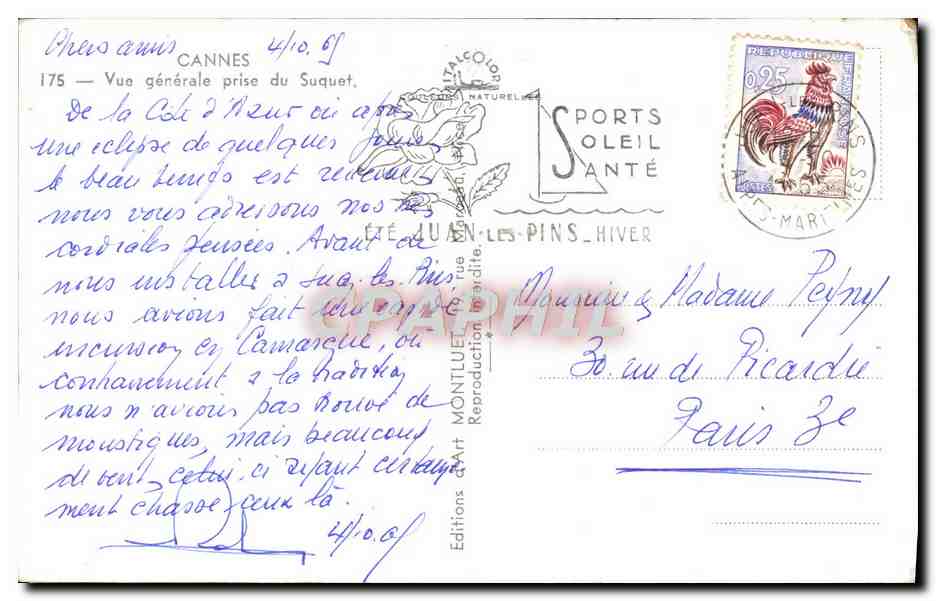 Chers amis 4/10.65
CANNES
175 — Vue générale prise du Suquet.
De la Côte d'Azur où après
une eclipse de quelques jours
le beau temps est revenu
nous vous adressons nos très
cordiales pensées. Avant de
nous installer à Juan les Pins
nous avions fait une rapide
incursion en Camargue, où
contrairement à la tradition
nous n'avions pas trouvé de
moustiques, mais beaucoup
de vent, celui ci ayant certaine
ment chassé ceux là.
4/10.65
ITALCOLOR
COULEURS NATURELLES
Editions d'Art MONTLUET, rue Marceau, Nice
Reproduction Interdite.
SPORTS
SOLEIL
SANTÉ
ÉTÉ JUAN-LES-PINS_HIVER
REPUBLIQUE FRANÇAISE
0,25
POSTES
JUAN-LES-PINS
ALPES-MARITIMES
CPAPHIL
Monsieur & Madame Peyny
30 rue de Picardie
Paris 3e